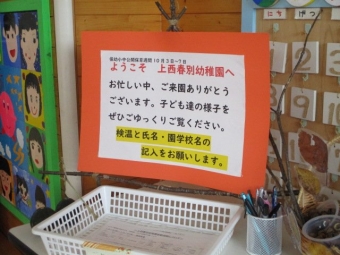 ようこそ 上西春別幼稚園へ
お忙しい中、ご来園ありがとう
ございます。子ども達の様子を
ぜひごゆっくりご覧ください。
検温と氏名・園学校名の
記入をお願いします。
にち
げつ